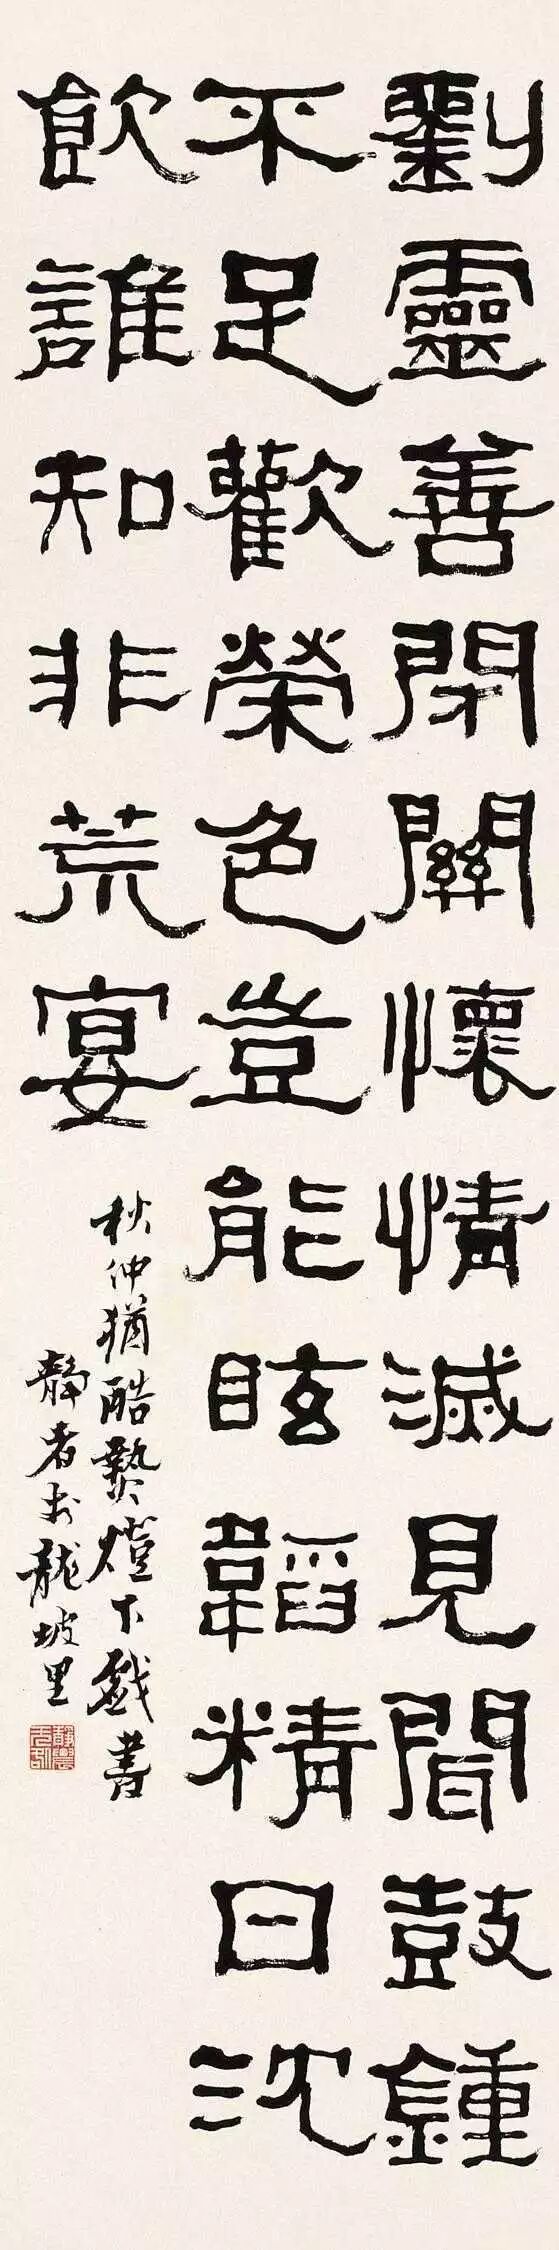 劉靈善閉關懷情滅見聞鼓鍾
不足歡榮色豈能眩韜精日沈
飲誰知非荒宴
秋仲猶酷熱燈下戲書
靜者於龍坡里